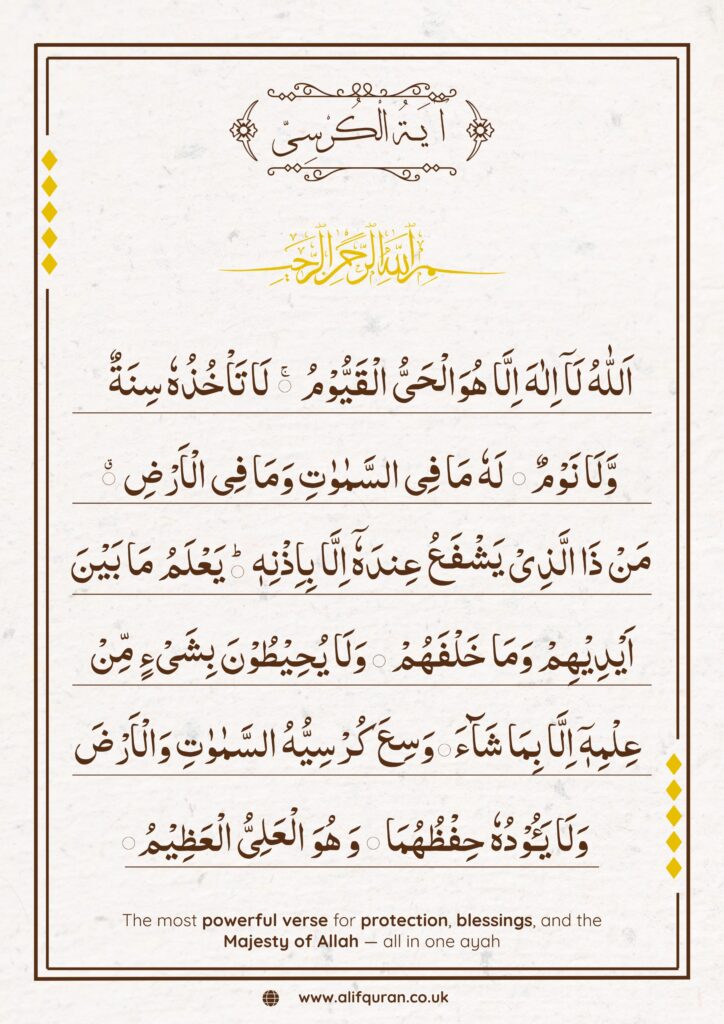 اٰيَةُ الْكُرْسِىّ
بِسْمِ اللّٰهِ الرَّحْمٰنِ الرَّحِيْمِ
اَللّٰهُ لَآ اِلٰهَ اِلَّا هُوَ الْحَىُّ الْقَيُّوْمُ ۚ لَا تَاْخُذُهٗ سِنَةٌ
وَّلَا نَوْمٌ ؕ لَهٗ مَا فِى السَّمٰوٰتِ وَمَا فِى الْاَرْضِ ؕ
مَنْ ذَا الَّذِىْ يَشْفَعُ عِندَهٗٓ اِلَّا بِاِذْنِهٖ ؕ يَعْلَمُ مَا بَيْنَ
اَيْدِيْهِمْ وَمَا خَلْفَهُمْ ۚ وَلَا يُحِيْطُوْنَ بِشَىْءٍ مِّنْ
عِلْمِهٖٓ اِلَّا بِمَا شَآءَ ۚ وَسِعَ كُرْسِيُّهُ السَّمٰوٰتِ وَالْاَرْضَ
وَلَا يَـُٔوْدُهٗ حِفْظُهُمَا ۚ وَ هُوَ الْعَلِىُّ الْعَظِيْمُ
The most powerful verse for protection, blessings, and the
Majesty of Allah — all in one ayah
www.alifquran.co.uk